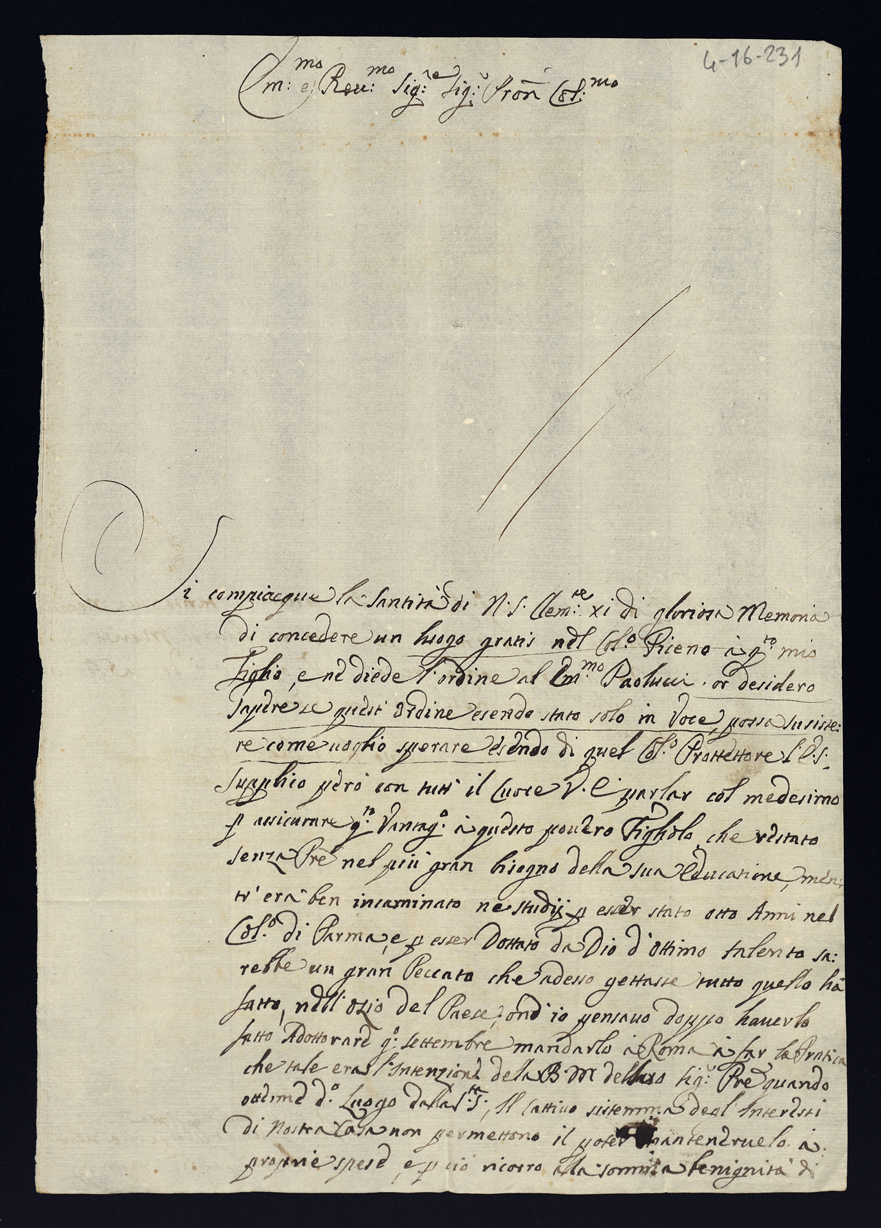 4-16-231
Em:mo e Reu:mo Sig:re Sig:r Pron Col:mo
Si compiacque la Santità di N: S: Clem:te XI di gloriosa Memoria
di concedere un luogo gratis nel Col:o Piceno à q:to mio
Figlio, e ne diede l'ordine al Em:mo Paolucci. or desidero
sapere se quest'Ordine esendo stato solo in Voce, possa susiste:
re come uoglio sperare esendo di quel Col:o Prottettore l'E:S:
Supplico però con tutt'il Cuore V. E. parlar col medesimo
p assicurare q:to Vantag:o à questo pouero Figholo, che restato
senza Pre nel più gran bisogno della sua educasione, men:
tr'era ben incaminato ne studij p esser stato otto Anni nel
Col:o di Parma, e p esser Dottato da Dio d'ottimo talento sa:
rebbe un gran Peccato che adesso gettasse tutto quello hà
fatto, nell'Ozio del Paese, ond'io pensauo doppo hauerlo
fatto Adottorare q:o settembre mandarlo à Roma à far la Pratica
che tale era l'Intenzione dela B M del suo Sig:r Pre quando
ottenne d:o Luogo dalla S:S:, Il Cattiuo sistemma degl'Interesti
di Nostra Casa non permettono il poter manteneruelo à
proprie spese, e p ciò ricorro alla somma benignità di